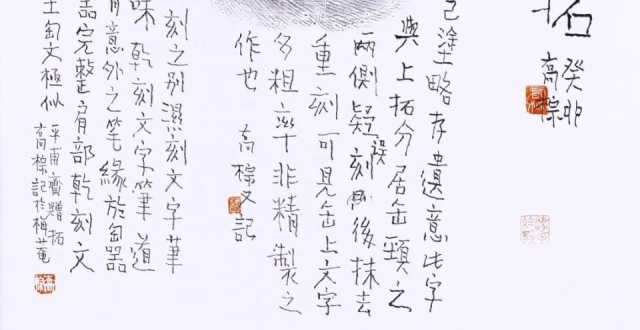 拓
癸卯
高棕
已塗略存遺意此字
與上拓分居缶頸之
兩側疑誤刻即後抹去
重刻可見缶上文字
多粗率非精製之
作也
高棕又記
刻之别濕刻文字筆
味乾刻文字筆道
有意外之笔緣於匋器
器完整肩部乾刻文
土匋文極似
平甫齋贈拓
高棕記於梅菴